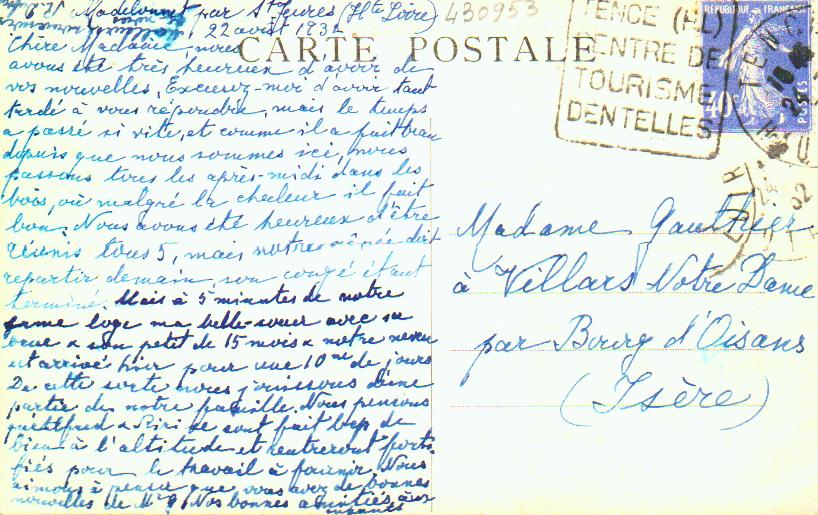 Madelonnet par St Jeures (Hte Loire)
430953
22 août 1932
CARTE POSTALE
TENCE (HL)
CENTRE DE
TOURISME
DENTELLES
REPUBLIQUE FRANÇAISE
40c
POSTES
Chère Madame nous
avons été très heureux d'avoir de
vos nouvelles. Excusez-moi d'avoir tant
tardé à vous répondre, mais le temps
a passé si vite, et comme il a fait beau
depuis que nous sommes ici, nous
passons tous les après-midi dans les
bois, où malgré la chaleur il fait
bon. Nous avons été heureux d'être
réunis tous 5, mais notre aînée doit
repartir demain son congé étant
terminé. Mais à 5 minutes de notre
ferme loge ma belle-sœur avec sa
& son petit de 15 mois & notre neveu
est arrivé hier pour une 10ne de jours
De cette sorte nous jouissons d'une
partie de notre famille. Nous pensons
que & se sont fait bcp de
bien à l'altitude et rentreront forti-
fiés pour le travail à fournir. Nous
aimons à penser que vous avez de bonnes
nouvelles de Mr G. Nos bonnes amitiés, aux
enfants
Madame Gauthier
à Villars Notre Dame
par Bourg d'Oisans
(Isère)